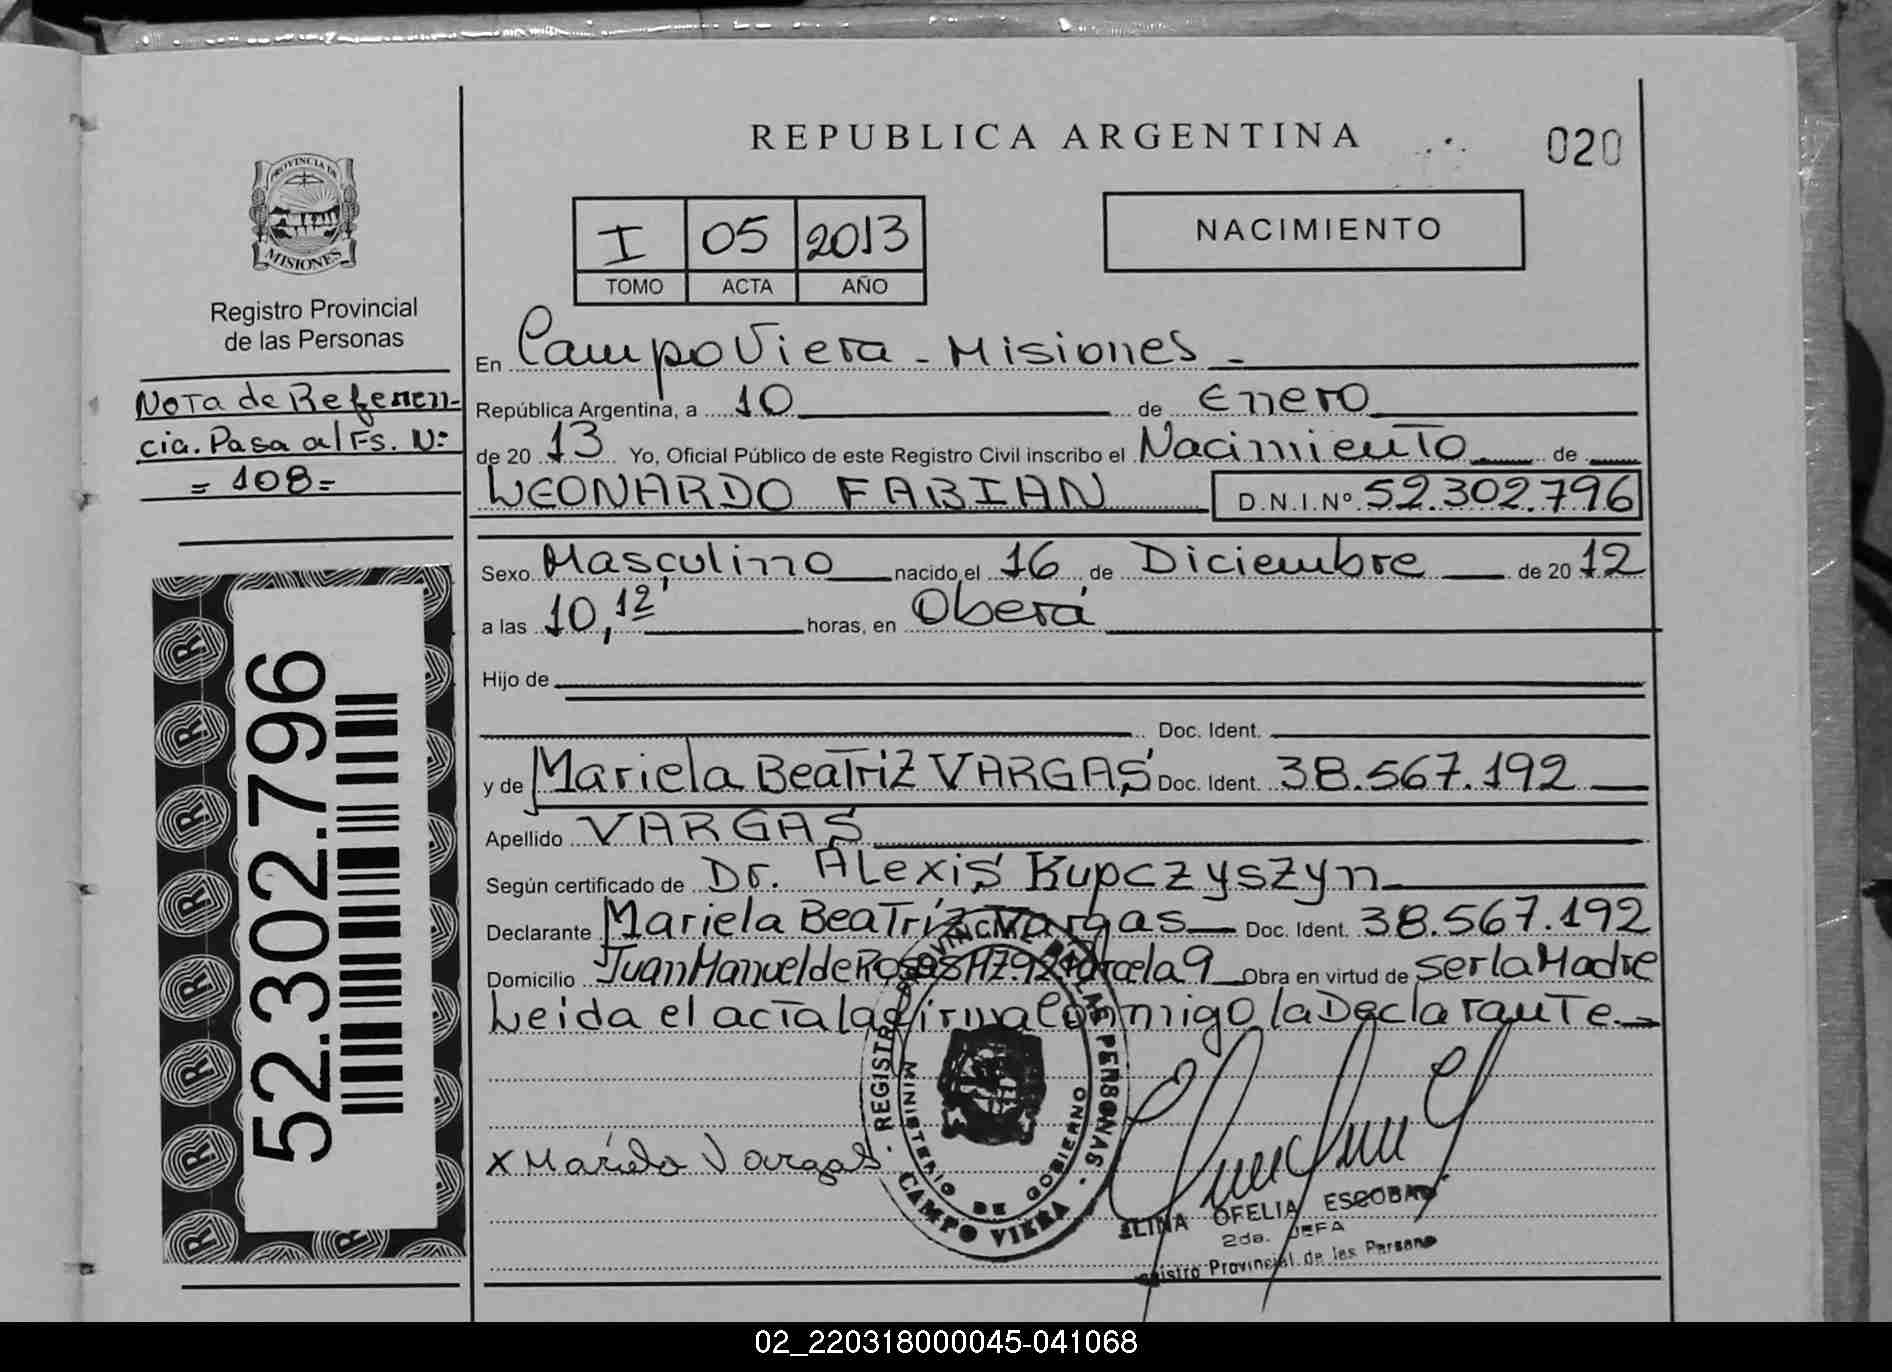 REPUBLICA ARGENTINA
020
PROVINCIA DE
MISIONES
Registro Provincial
de las Personas
I 05 2013
TOMO ACTA AÑO
NACIMIENTO
Nota de Referen-
cia. Pasa al Fs. Nº
= 108 =
En Campo Viera - Misiones -
República Argentina, a 10 de Enero
de 20 13 Yo, Oficial Público de este Registro Civil inscribo el Nacimiento de
LEONARDO FABIAN D.N.I.Nº 52.302.796
Sexo Masculino nacido el 16 de Diciembre de 20 12
a las 10,12' horas, en Oberá
Hijo de
Doc. Ident.
y de Mariela Beatriz VARGAS Doc. Ident. 38.567.192
Apellido VARGAS
Según certificado de Dr. Alexis Kupczyszyn
Declarante Mariela Beatriz Vargas Doc. Ident. 38.567.192
Domicilio Juan Manuel de Rosas MZ.92 Parcela 9 Obra en virtud de ser la Madre
Leida el acta la firma Conmigo la Declarante
52.302.796
x Mariela Vargas
REGISTRO PROVINCIAL DE LAS PERSONAS
MINISTERIO DE GOBIERNO
CAMPO VIERA
OFELIA ESCOBAR
2da. JEFA
Registro Provincial de las Personas
02_220318000045-041068